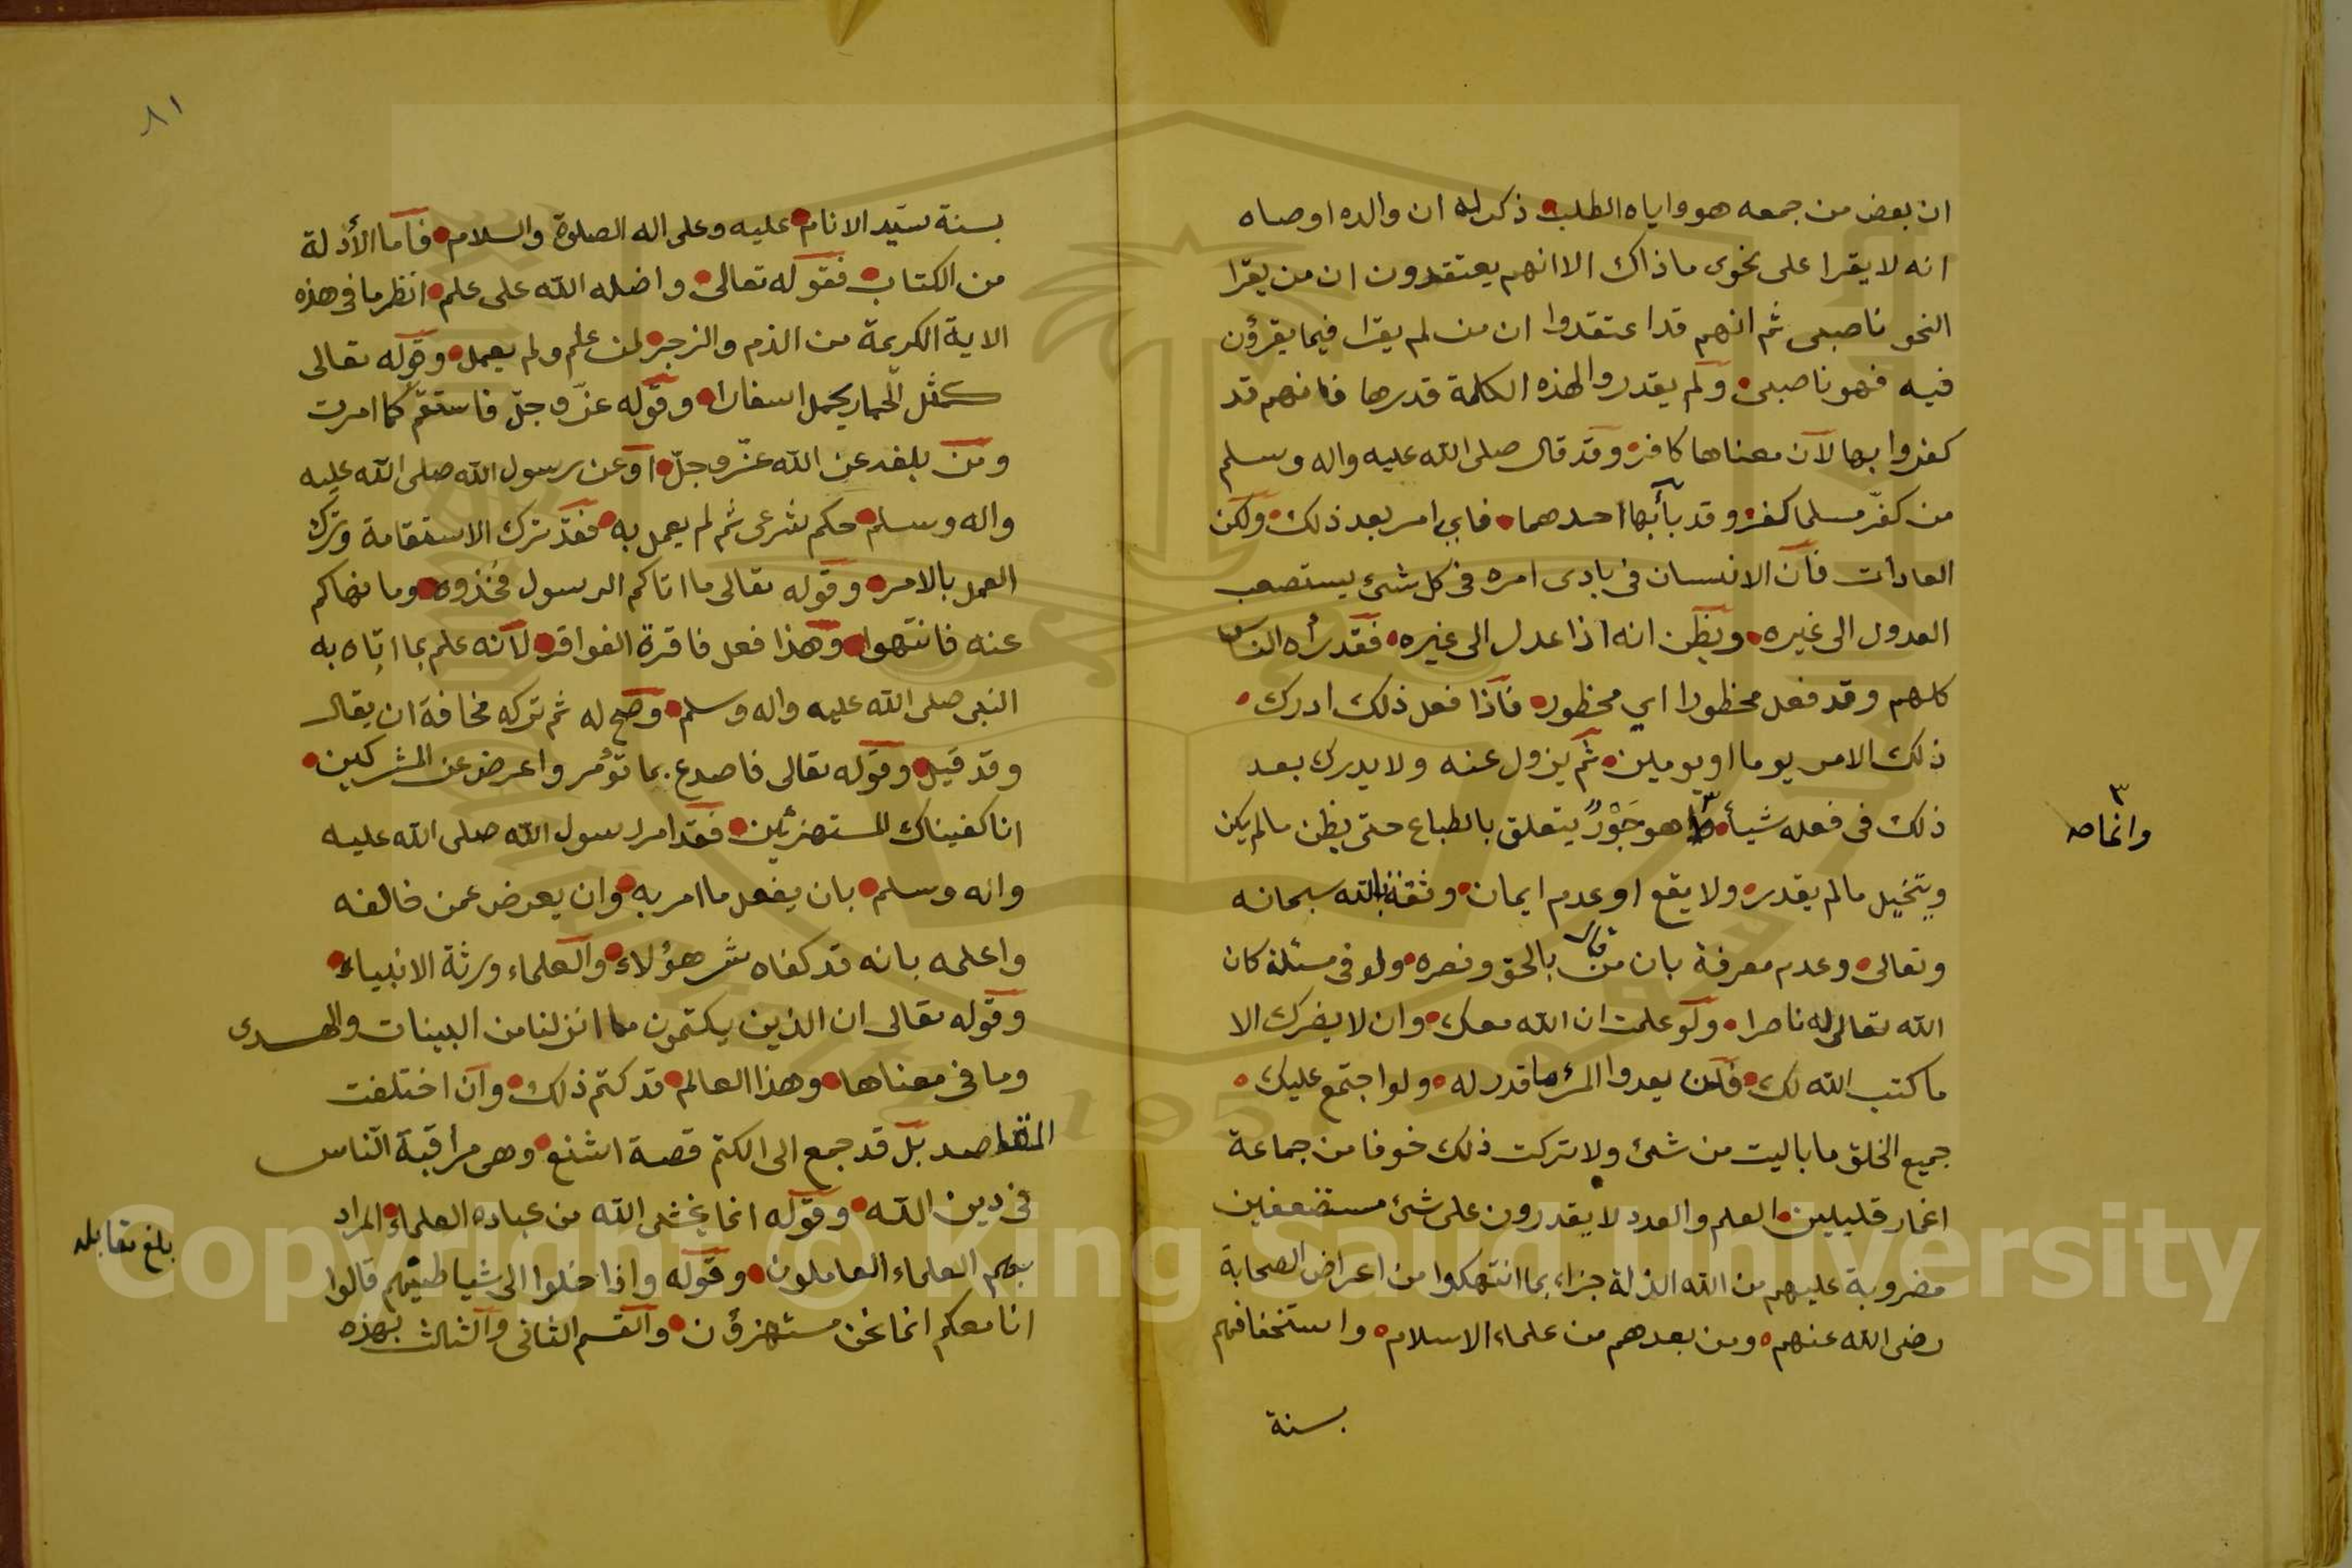 ان بعض من جمعه هو واياه الطلب ذكر له ان والده اوصاه
انه لا يقرا على نحوى ما ذاك الا انهم يعتقدون ان من يقرا
النحو ناصبى ثم انهم قد اعتقدوا ان من لم يقرا فيما يقرؤن
فيه فهو ناصبى ولم يقدروا لهذه الكلمة قدرها فانهم قد
كفروا بها لان معناها كافر وقد قال صلى الله عليه واله وسلم
من كفّر مسلما كفر وقد بأبها احدهما فاي امر بعد ذلك ولكن
العادات فان الانسان فى بادى امره فى كل شئ يستصعب
العدول الى غيره ويظن انه اذا عدل الى غيره فقد رأه الناس
كلهم وقد فعل محظورا اي محظور فاذا فعل ذلك ادرك
ذلك الامر يوما او يومين ثم يزول عنه ولا يدرك بعد
ذلك فى فعله شيأ هو جَوْرٌ يتعلق بالطباع حتى يظن مالم يكن
وانماصه
ويتخيل مالم يقدر ولا يقع او عدم ايمان وثقة بالله سبحانه
وتعالى وعدم معرفة بان من قال بالحق ونصره ولو فى مسئلة كان
الله تعالى له ناصرا ولو علمت ان الله معك وان لا يضرك الا
ما كتب الله لك فلن يعدوا المرء ما قدر له ولو اجتمع عليك
جميع الخلق ما باليت من شئ ولا تركت ذلك خوفا من جماعة
اغمار قليلين العلم والعدد لا يقدرون على شئ مستضعفين
مضروبة عليهم من الله الذلة جزاء بما انتهكوا من اعراض الصحابة
رضى الله عنهم ومن بعدهم من علماء الاسلام واستخفافهم
بسنة
٨١
بسنة سيّد الانام عليه وعلى اله الصلوة والسلام فاما الأدلة
من الكتاب فقوله تعالى واضله الله على علم انظر ما فى هذه
الاية الكريمة من الذم والزجر لمن علم ولم يعمل وقوله تعالى
كمثل الحمار يحمل اسفارا وقوله عزّ وجلّ فاستقم كما امرت
ومن بلغه عن الله عزّ وجلّ او عن رسول الله صلى الله عليه
واله وسلم حكم شرعى ثم لم يعمل به فقد ترك الاستقامة وترك
العمل بالامر وقوله تعالى ما اتاكم الرسول فخذوه وما نهاكم
عنه فانتهوا وهذا فعل فاقرة الفواقر لانه علم بما اتاه به
النبى صلى الله عليه واله وسلم وصح له ثم تركه مخافة ان يقال
وقد قيل وقوله تعالى فاصدع بما تؤمر واعرض عن المشركين
انا كفيناك المستهزئين فقد امر رسول الله صلى الله عليه
واله وسلم بان يفعل ما امر به وان يعرض عمن خالفه
واعلمه بانه قد كفاه شر هؤلاء والعلماء ورثة الانبياء
وقوله تعالى ان الذين يكتمون ما انزلنا من البينات والهدى
وما فى معناها وهذا العالم قد كتم ذلك وان اختلفت
المقاصد بل قد جمع الى الكتم قصة اشنع وهى مراقبة الناس
فى دين الله وقوله انما يخشى الله من عباده العلماء المراد
بهم العلماء العاملون وقوله واذا خلوا الى شياطينهم قالوا
بلغ مقابله
انا معكم انما نحن مستهزؤن والقسم الثانى والثالث بهذه
Copyright © King Saud University